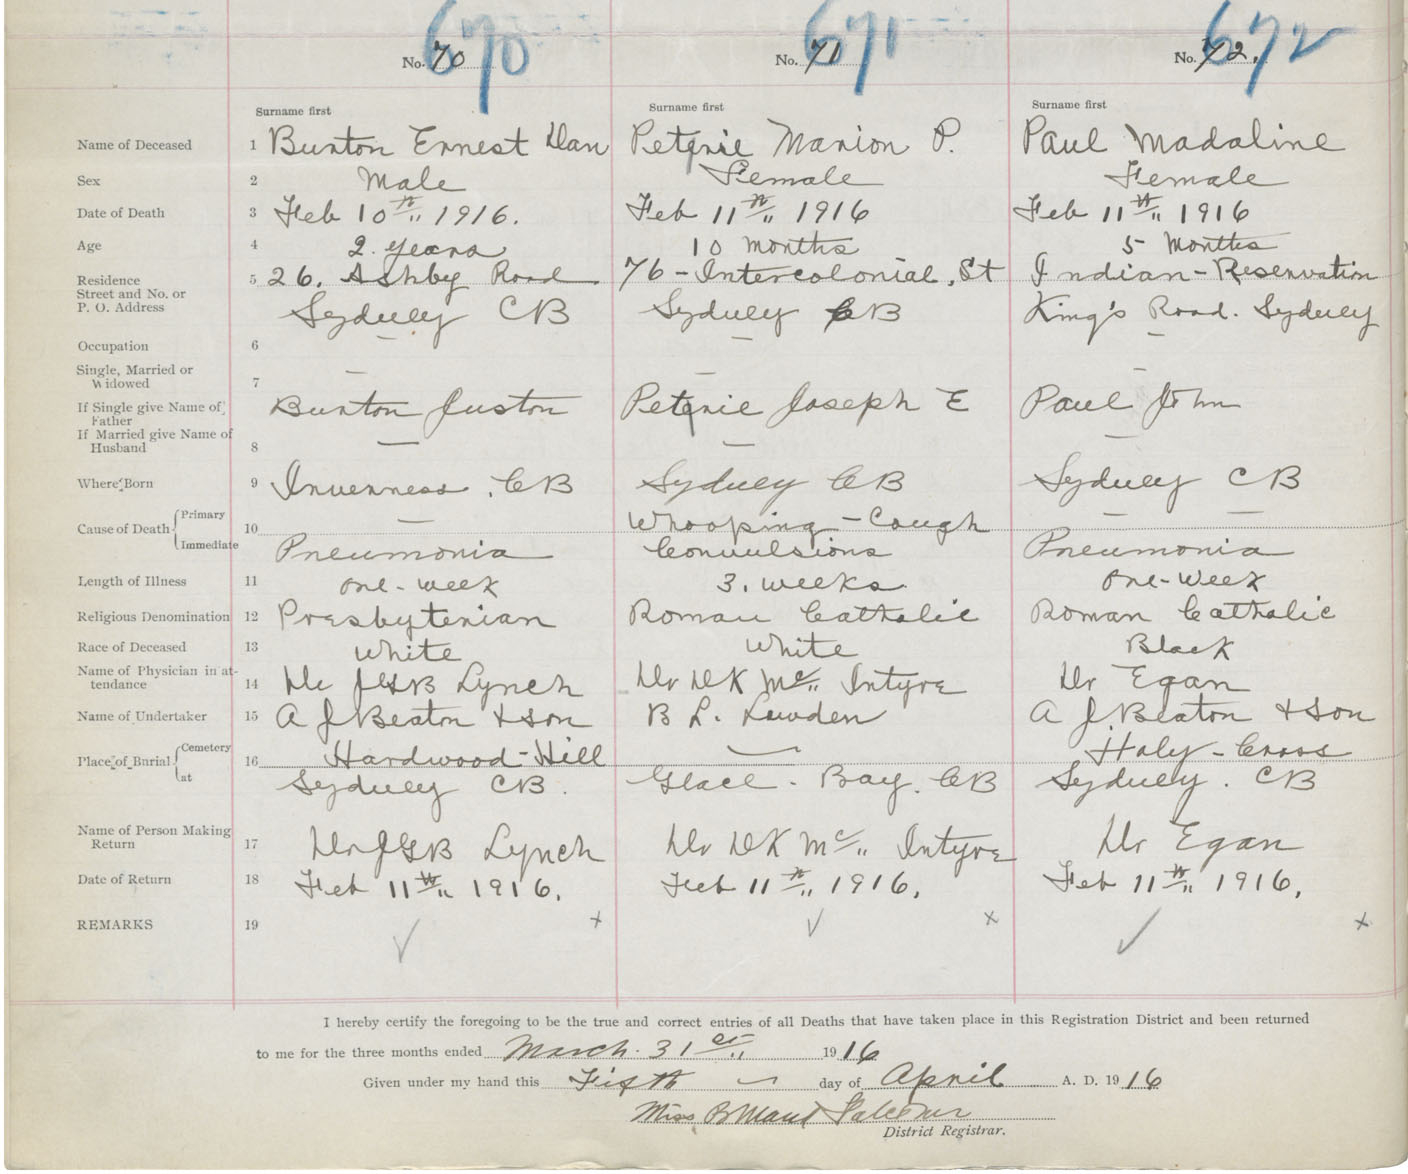 670 671 672
No. 70 No. 71 No. 72.
Surname first Surname first Surname first
Name of Deceased 1 Burton Ernest Dan Petrie Marion P. Paul Madaline
Sex 2 Male Female Female
Date of Death 3 Feb 10th 1916. Feb 11th 1916 Feb 11th 1916
Age 4 2 years 10 months 5 Months
Residence 5 26. Ashby Road 76 - Intercolonial St Indian - Reservation
Street and No. or
P. O. Address Sydney CB Sydney CB King's Road. Sydney
Occupation 6 — — —
Single, Married or
Widowed 7 — — —
If Single give Name of Father Burton Juston Petrie Joseph E Paul John
If Married give Name of
Husband 8 — — —
Where Born 9 Inverness. CB Sydney CB Sydney CB
Cause of Death Primary 10 — Whooping - Cough — —
Immediate Pneumonia Convulsions Pneumonia
Length of Illness 11 one-week 3. weeks. one-week
Religious Denomination 12 Presbyterian Roman Catholic Roman Catholic
Race of Deceased 13 White White Black
Name of Physician in at-
tendance 14 Dr JGB Lynch Dr DK Mc Intyre Dr Egan
Name of Undertaker 15 A J Beaton & Son B L. A J. Beaton & Son
Place of Burial Cemetery 16 Hardwood-Hill — Holy-Cross
at Sydney CB. Glace - Bay. CB Sydney. CB
Name of Person Making
Return 17 Dr JGB Lynch Dr DK Mc Intyre Dr Egan
Date of Return 18 Feb 11th 1916. Feb 11th 1916. Feb 11th 1916.
REMARKS 19 ✓ x ✓ x ✓ x
I hereby certify the foregoing to be the true and correct entries of all Deaths that have taken place in this Registration District and been returned
to me for the three months ended March. 31st 1916
Given under my hand this Fifth day of April A. D. 1916
Miss B Maud
District Registrar.